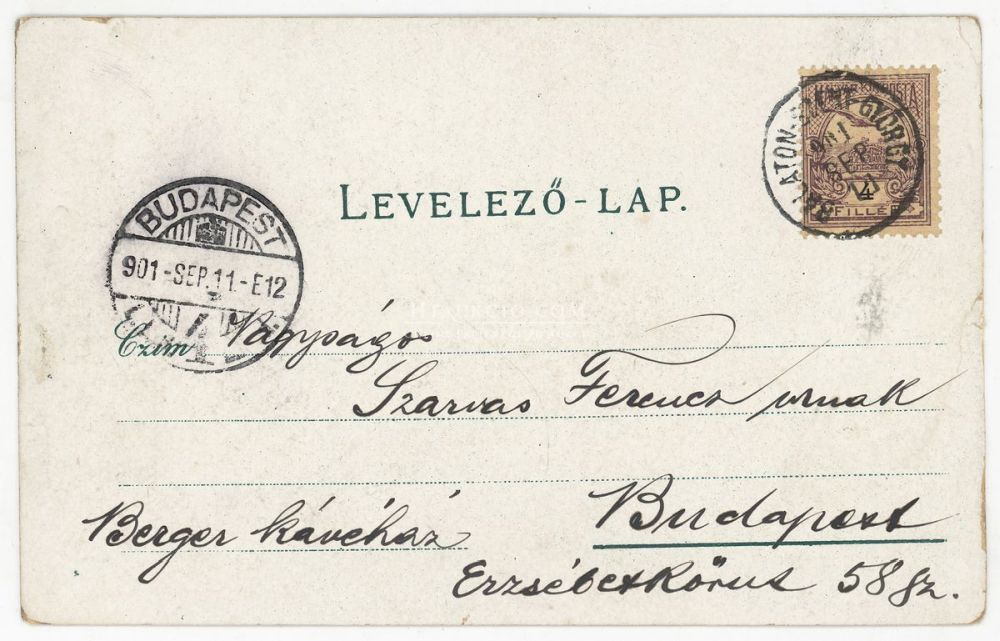 LEVELEZŐ-LAP.
BALATON-SZENTGYÖRGY
901
SEP
11
MAGYAR KIR. POSTA
4
FILLÉR
BUDAPEST
901-SEP.11.-E12
Czim Nagyságos
Szarvas Ferencz urnak
Budapest
Berger kávéház
Erzsébetkörut 58 sz.